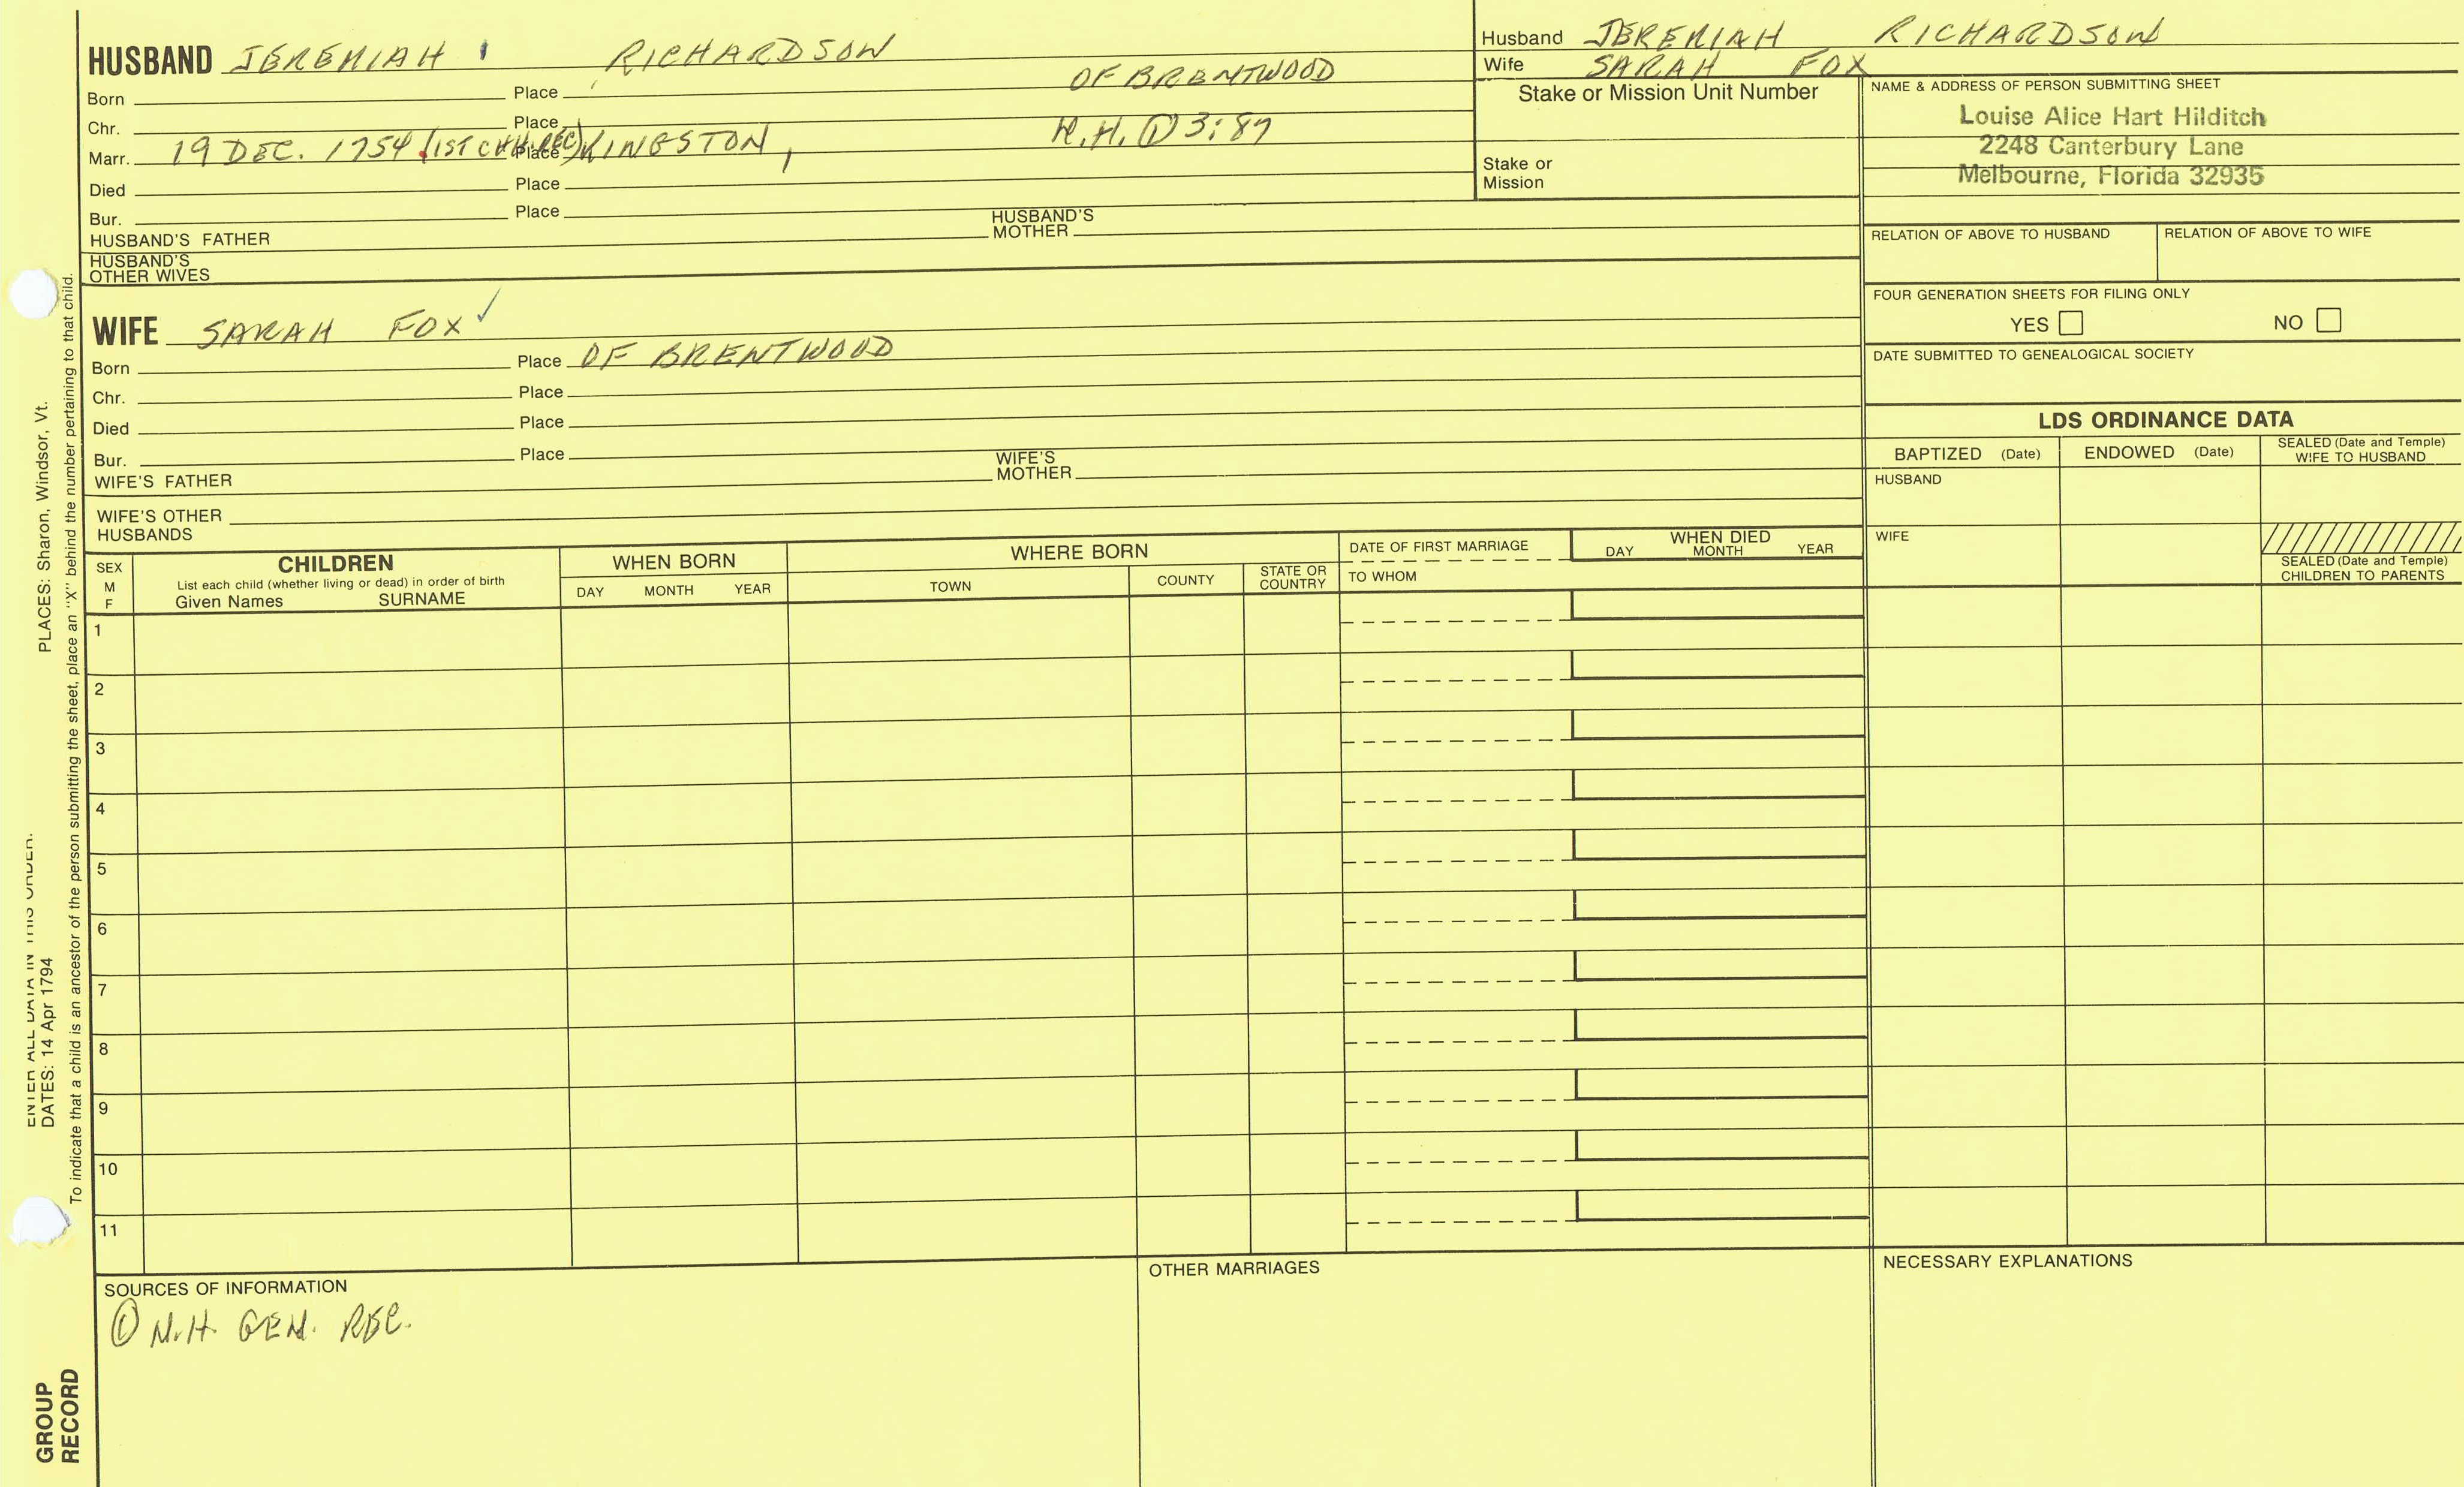 HUSBAND JEREMIAH RICHARDSON
Born Place OF BRENTWOOD
Chr. Place
Marr. 19 DEC. 1754 (1ST CH. REC) Place KINGSTON, N.H. ① 3:87
Died Place
Bur. Place
HUSBAND'S FATHER HUSBAND'S MOTHER
HUSBAND'S OTHER WIVES
Husband JEREMIAH RICHARDSON
Wife SARAH FOX
Stake or Mission Unit Number
Stake or Mission
NAME & ADDRESS OF PERSON SUBMITTING SHEET
Louise Alice Hart Hilditch
2248 Canterbury Lane
Melbourne, Florida 32935
RELATION OF ABOVE TO HUSBAND RELATION OF ABOVE TO WIFE
FOUR GENERATION SHEETS FOR FILING ONLY
YES NO
DATE SUBMITTED TO GENEALOGICAL SOCIETY
WIFE SARAH FOX ✓
Born Place OF BRENTWOOD
Chr. Place
Died Place
Bur. Place
WIFE'S FATHER WIFE'S MOTHER
WIFE'S OTHER HUSBANDS
LDS ORDINANCE DATA
BAPTIZED (Date) ENDOWED (Date) SEALED (Date and Temple) WIFE TO HUSBAND
HUSBAND
WIFE
SEALED (Date and Temple) CHILDREN TO PARENTS
SEX
M
F
CHILDREN
List each child (whether living or dead) in order of birth
Given Names SURNAME
WHEN BORN
DAY MONTH YEAR
WHERE BORN
TOWN COUNTY STATE OR COUNTRY
DATE OF FIRST MARRIAGE
TO WHOM
WHEN DIED
DAY MONTH YEAR
1
2
3
4
5
6
7
8
9
10
11
SOURCES OF INFORMATION
① N.H. GEN. REC.
OTHER MARRIAGES
NECESSARY EXPLANATIONS
ENTER ALL DATA IN THIS ORDER:
DATES: 14 Apr 1794 PLACES: Sharon, Windsor, Vt.
To indicate that a child is an ancestor of the person submitting the sheet, place an "X" behind the number pertaining to that child.
GROUP
RECORD